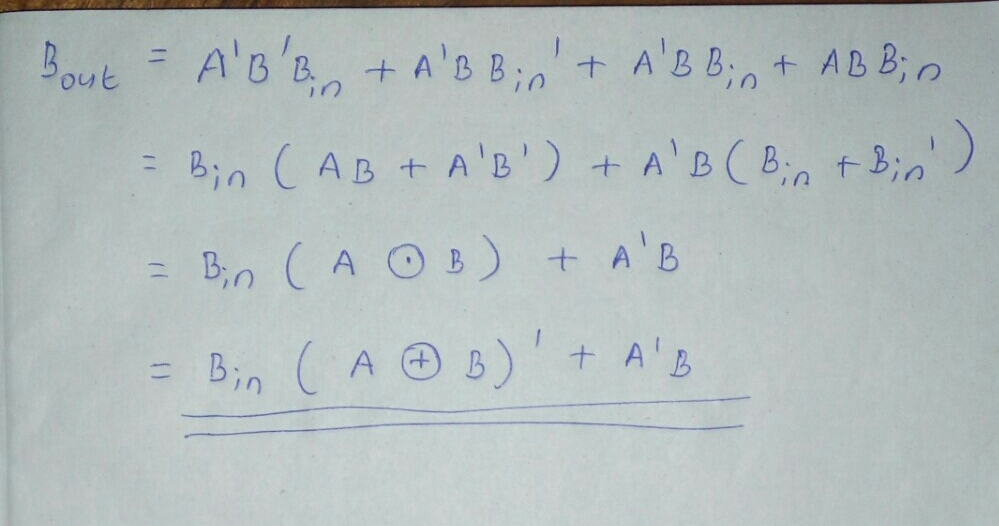 Bout = A'B'Bin + A'BBin' + A'BBin + ABBin
= Bin (AB + A'B') + A'B (Bin + Bin')
= Bin (A ⊙ B) + A'B
= Bin (A ⊕ B)' + A'B